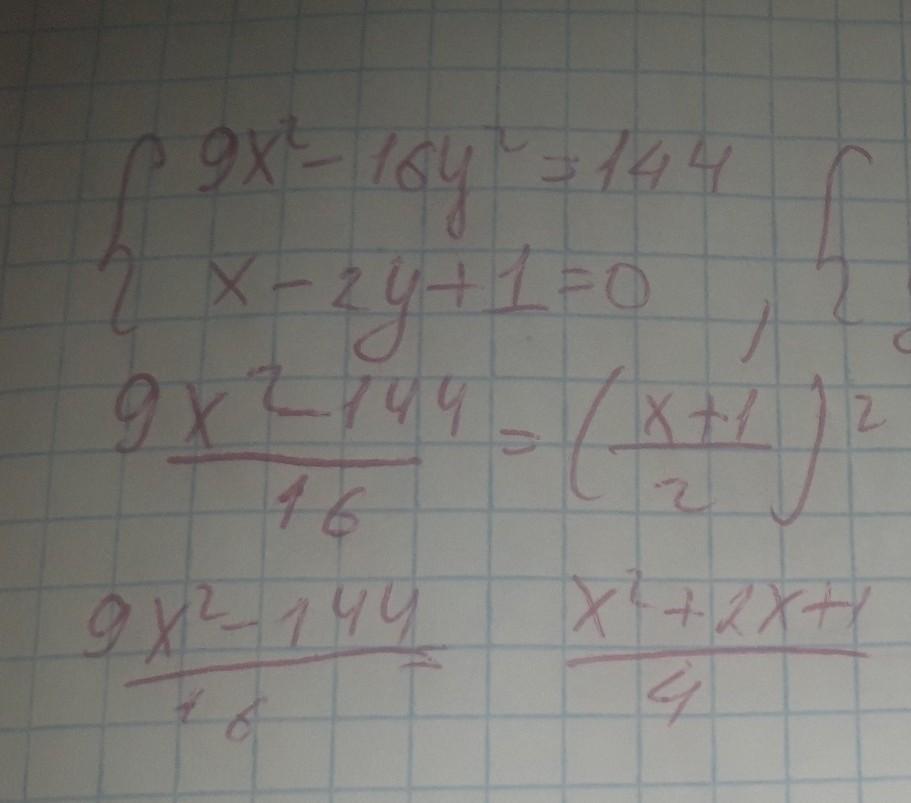 { 9x² - 16y² = 144 {
x - 2y + 1 = 0 ,
9x² - 144 / 16 = ( x + 1 / 2 )²
9x² - 144 / 16 = x² + 2x + 1 / 4